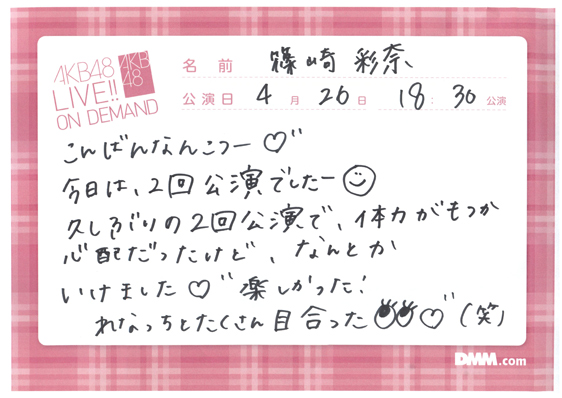 AKB48
LIVE!!
ON DEMAND
AKB
48
名前 篠崎 彩奈
公演日 4月26日 18:30公演
こんばんなんこつー♡゛
今日は、2回公演でしたー☺
久しぶりの2回公演で、体力がもつか
心配だったけど、なんとか
いけました♡゛楽しかった!
れなっちとたくさん目合った👀♡゛(笑)
DMM.com